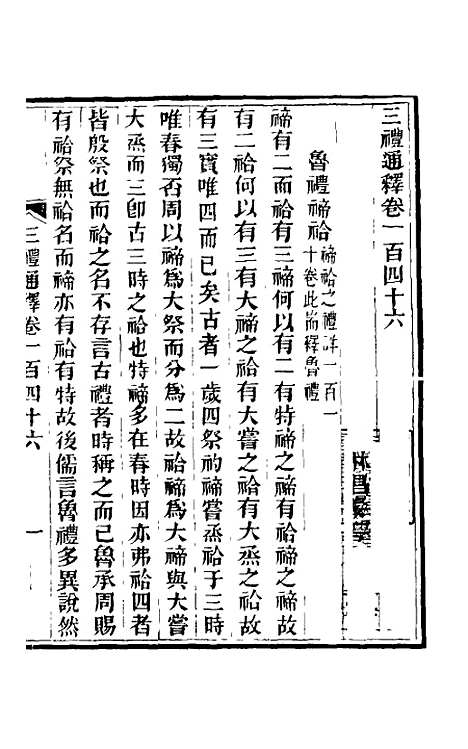 三禮通釋卷一百四十六
林昌彝學
魯禮禘祫
禘祫之禮詳一百一
十卷此耑釋魯禮
禘有二而祫有三禘何以有二有特禘之禘有祫禘之禘故
有二祫何以有三有大禘之祫有大嘗之祫有大烝之祫故
有三實唯四而已矣古者一歲四祭礿禘嘗烝祫于三時
唯春獨否周以禘爲大祭而分爲二故祫禘爲大禘與大嘗
大烝而三卽古三時之祫也特禘多在春時因亦弗祫四者
皆殷祭也而祫之名不存言古禮者時稱之而已魯承周賜
有祫祭無祫名而禘亦有祫有特故後儒言魯禮多異說然
三禮通釋卷一百四十六
一